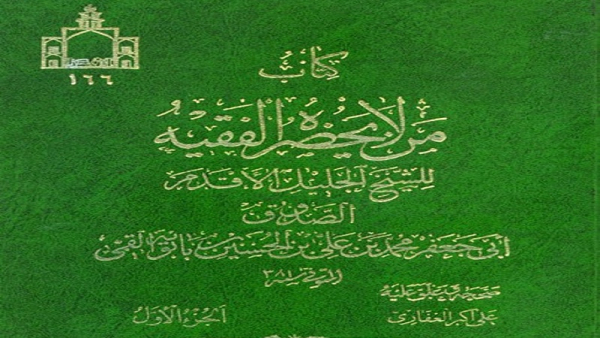 ١٦٦
كتاب
من لا يحضره الفقيه
للشيخ الجليل الأقدم
الصدوق
أبي جعفر محمد بن علي بن الحسين بن بابويه القمي
المتوفى ٣٨١
صححه وعلق عليه
علي أكبر الغفاري
الجزء الأول